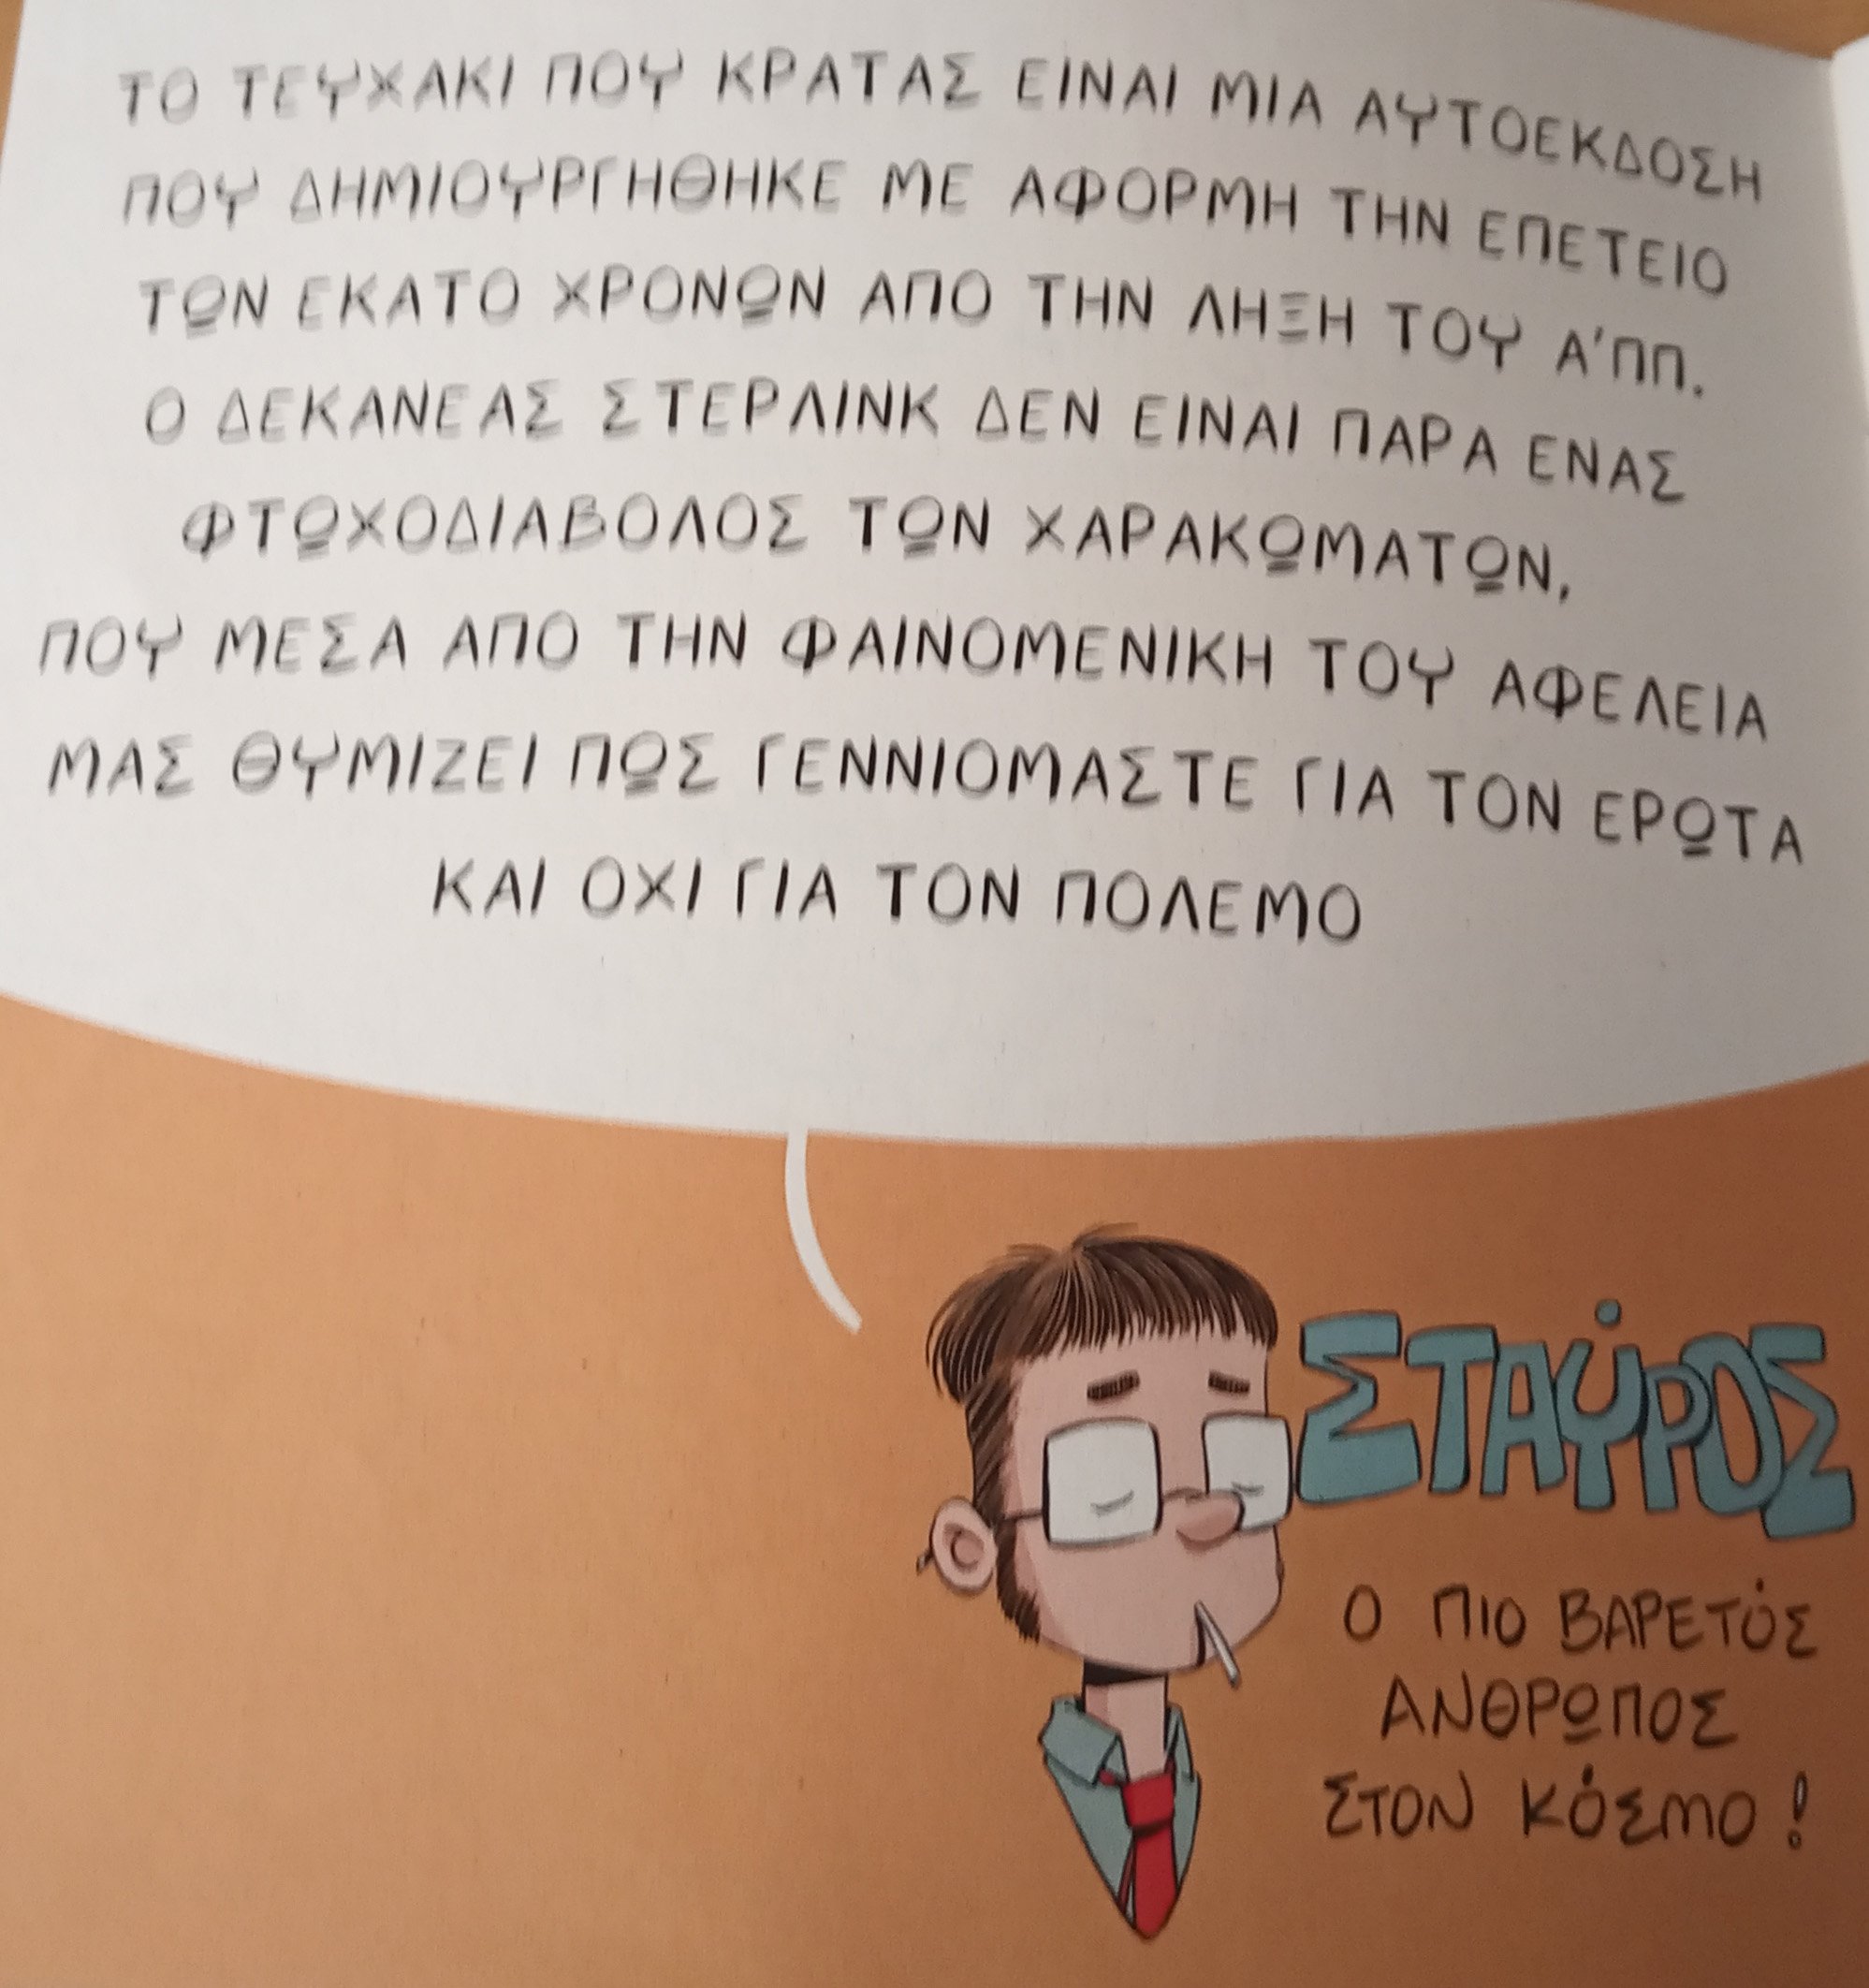 ΤΟ ΤΕΥΧΑΚΙ ΠΟΥ ΚΡΑΤΑΣ ΕΙΝΑΙ ΜΙΑ ΑΥΤΟΕΚΔΟΣΗ
ΠΟΥ ΔΗΜΙΟΥΡΓΗΘΗΚΕ ΜΕ ΑΦΟΡΜΗ ΤΗΝ ΕΠΕΤΕΙΟ
ΤΩΝ ΕΚΑΤΟ ΧΡΟΝΩΝ ΑΠΟ ΤΗΝ ΛΗΞΗ ΤΟΥ Α'ΠΠ.
Ο ΔΕΚΑΝΕΑΣ ΣΤΕΡΛΙΝΚ ΔΕΝ ΕΙΝΑΙ ΠΑΡΑ ΕΝΑΣ
ΦΤΩΧΟΔΙΑΒΟΛΟΣ ΤΩΝ ΧΑΡΑΚΩΜΑΤΩΝ,
ΠΟΥ ΜΕΣΑ ΑΠΟ ΤΗΝ ΦΑΙΝΟΜΕΝΙΚΗ ΤΟΥ ΑΦΕΛΕΙΑ
ΜΑΣ ΘΥΜΙΖΕΙ ΠΩΣ ΓΕΝΝΙΟΜΑΣΤΕ ΓΙΑ ΤΟΝ ΕΡΩΤΑ
ΚΑΙ ΟΧΙ ΓΙΑ ΤΟΝ ΠΟΛΕΜΟ
ΣΤΑΎΡΟΣ
Ο ΠΙΟ ΒΑΡΕΤΌΣ
ΑΝΘΡΩΠΟΣ
ΣΤΟΝ ΚΌΣΜΟ!